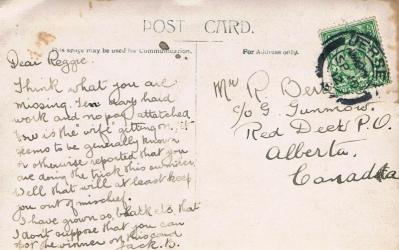 POST CARD.
This space may be used for Communication.
For Address only.
JERSEY
Dear Reggie.
Think what you are
missing. Ten days hard
work and no pay attached
How is the wife getting on. It
seems to be generally known
or otherwise reported that you
are doing the trick this summer.
Well that will at least keep
you out of mischief.
I have grown so, that
I dont suppose that you can
spot the winner on this card
Jack. B.
Mr R. Bert
c/o G. Gunmow.
Red Deer P.O.
Alberta.
Canada